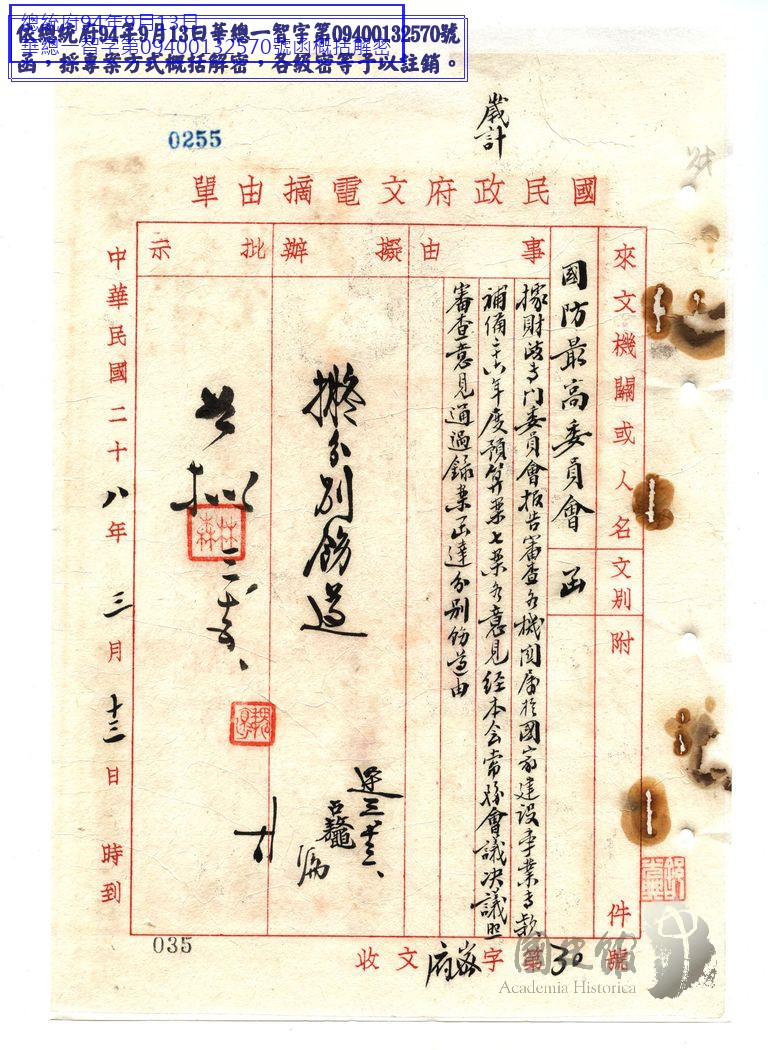 總統府94年9月13日
華總一智字第09400132570號函概括解密
依總統府94年9月13日華總一智字第09400132570號
函，採專案方式概括解密，各級密等予以註銷。
歲計
0255
國民政府文電摘由單
來文機關或人名
國防最高委員會
文別
函
附件
事由
據財政專門委員會報告審查各機關屬於國家建設事業專款
補備二十六年度預算案七案各意見經本会常務會議决議照
審查意見通過錄案函達分別飭遵由
擬辦
擬分別飭遵
批示
林森
中華民國二十八年三月十三日時到
收文府密字第30號
035
國史館
Academia Historica